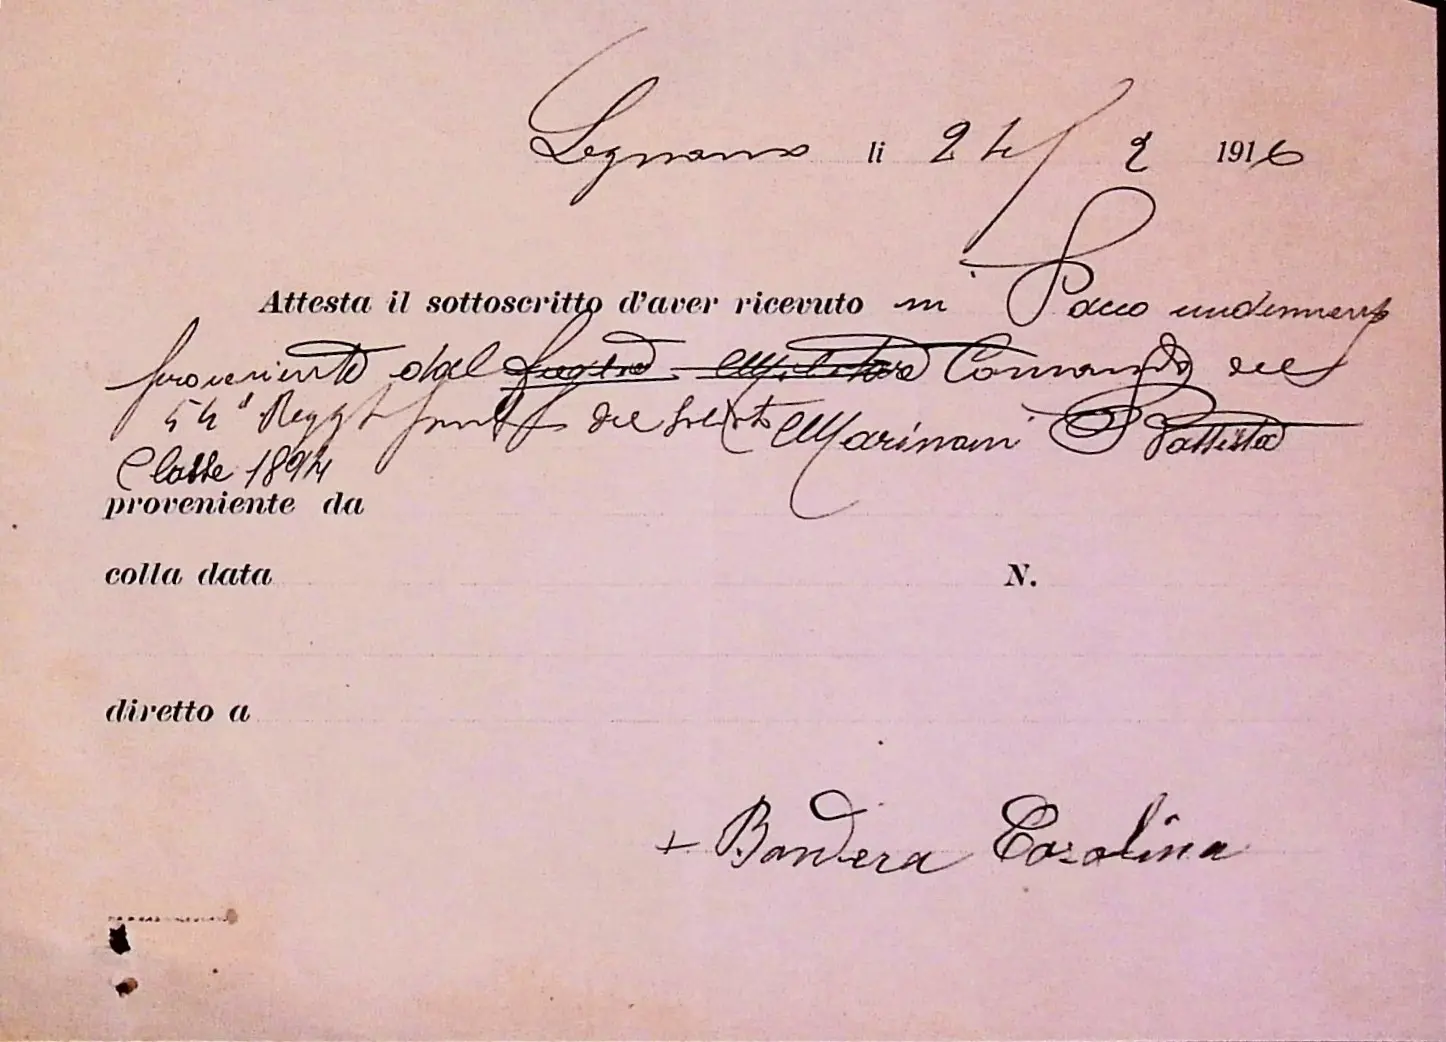 Legnano li 24/2 1916
Attesta il sottoscritto d'aver ricevuto un Pacco indumenti
proveniente dal Comando del
54° Regg. fant. del soldato Marinoni Battista
Classe 1894
proveniente da
colla data N.
diretto a
+ Bandera Carolina